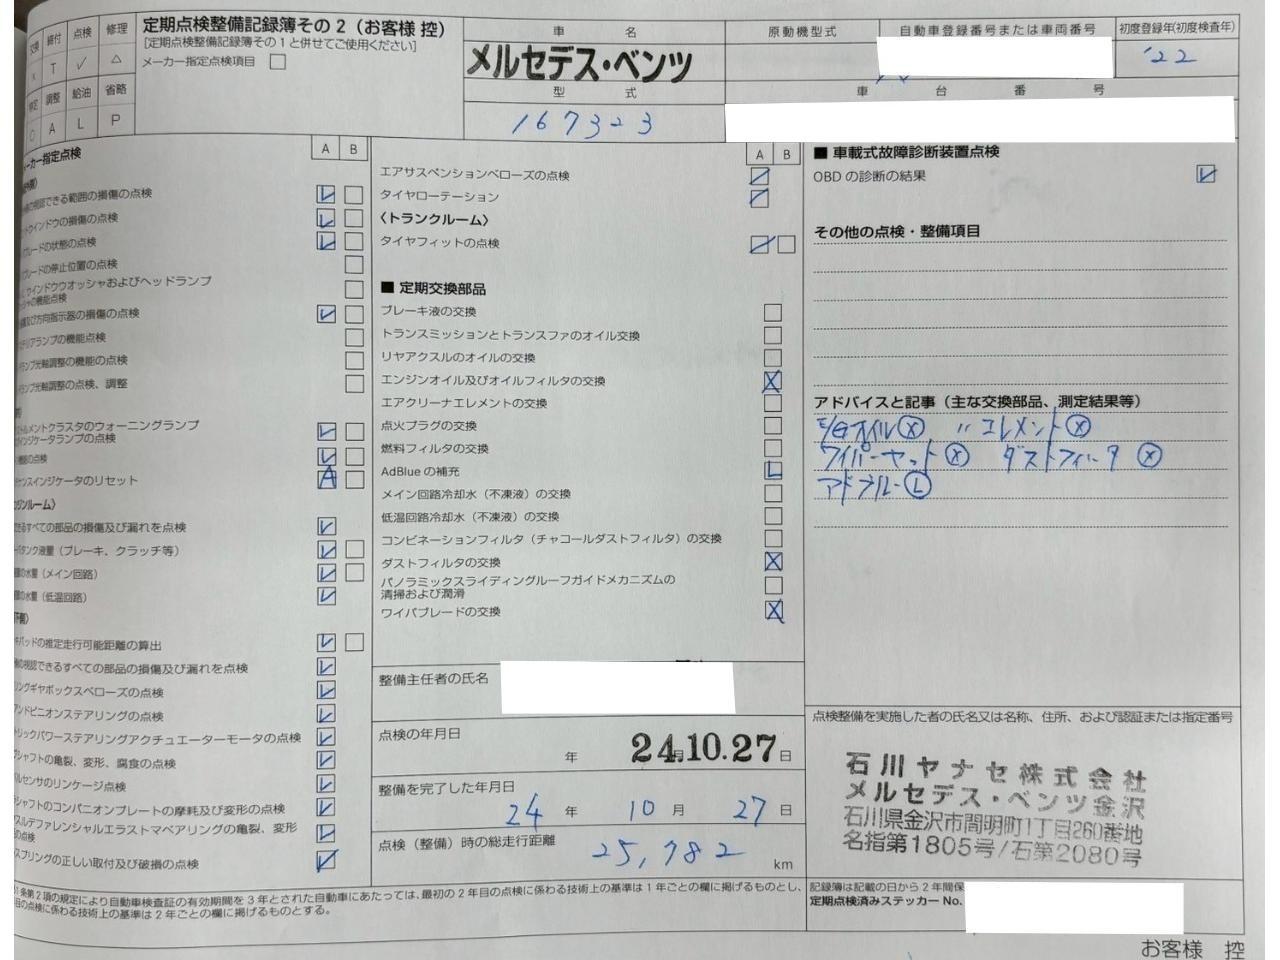 交換 締付 点検 修理
× T ✓ △
調整 給油 省略
○ A L P
定期点検整備記録簿その2(お客様 控)
[定期点検整備記録簿その1と併せてご使用ください]
メーカー指定点検項目 □
車 名
メルセデス・ベンツ
型 式
167323
原動機型式
自動車登録番号または車両番号
初度登録年(初度検査年)
'22
車 台 番 号
ーカー指定点検
A B
の視認できる範囲の損傷の点検
ントウインドウの損傷の点検
ブレードの状態の点検
ブレードの停止位置の点検
ウインドウウオッシャおよびヘッドランプ
シャの機能点検
及び方向指示器の損傷の点検
テリアランプの機能点検
ランプ光軸調整の機能の点検
ランプ光軸調整の点検、調整
トルメントクラスタのウォーニングランプ
インジケータランプの点検
機器の点検
テナンスインジケータのリセット A
ンジンルーム〉
きるすべての部品の損傷及び漏れを点検
バタンク液量(ブレーキ、クラッチ等)
器の水量(メイン回路)
器の水量(低温回路)
キパッドの推定走行可能距離の算出
の視認できるすべての部品の損傷及び漏れを点検
リングギヤボックスベローズの点検
アンドピニオンステアリングの点検
トリックパワーステアリングアクチュエーターモータの点検
シャフトの亀裂、変形、腐食の点検
ルセンサのリンケージ点検
シャフトのコンパニオンプレートの摩耗及び変形の点検
スルデファレンシャルエラストマベアリングの亀裂、変形
の点検
スプリングの正しい取付及び破損の点検
A B
エアサスペンションベローズの点検
タイヤローテーション
〈トランクルーム〉
タイヤフィットの点検
■ 定期交換部品
ブレーキ液の交換
トランスミッションとトランスファのオイル交換
リヤアクスルのオイルの交換
エンジンオイル及びオイルフィルタの交換 X
エアクリーナエレメントの交換
点火プラグの交換
燃料フィルタの交換
AdBlue の補充 L
メイン回路冷却水(不凍液)の交換
低温回路冷却水(不凍液)の交換
コンビネーションフィルタ(チャコールダストフィルタ)の交換
ダストフィルタの交換 X
パノラミックスライディングルーフガイドメカニズムの
清掃および潤滑
ワイパブレードの交換 X
整備主任者の氏名
点検の年月日
年 24月10.27日
整備を完了した年月日
24 年 10 月 27 日
点検(整備)時の総走行距離
25,782 km
■ 車載式故障診断装置点検
OBD の診断の結果
その他の点検・整備項目
アドバイスと記事(主な交換部品、測定結果等)
E/Gオイル ⓧ 〃 エレメント ⓧ
ワイパーセット ⓧ ダストフィータ ⓧ
アドブルー Ⓛ
点検整備を実施した者の氏名又は名称、住所、および認証または指定番号
石川ヤナセ株式会社
メルセデス・ベンツ金沢
石川県金沢市間明町1丁目260番地
名指第1805号/石第2080号
条第2項の規定により自動車検査証の有効期間を3年とされた自動車にあたっては、最初の2年目の点検に係わる技術上の基準は1年ごとの欄に掲げるものとし、
目の点検に係わる技術上の基準は2年ごとの欄に掲げるものとする。
記録簿は記載の日から2年間保
定期点検済みステッカー No.
お客様 控